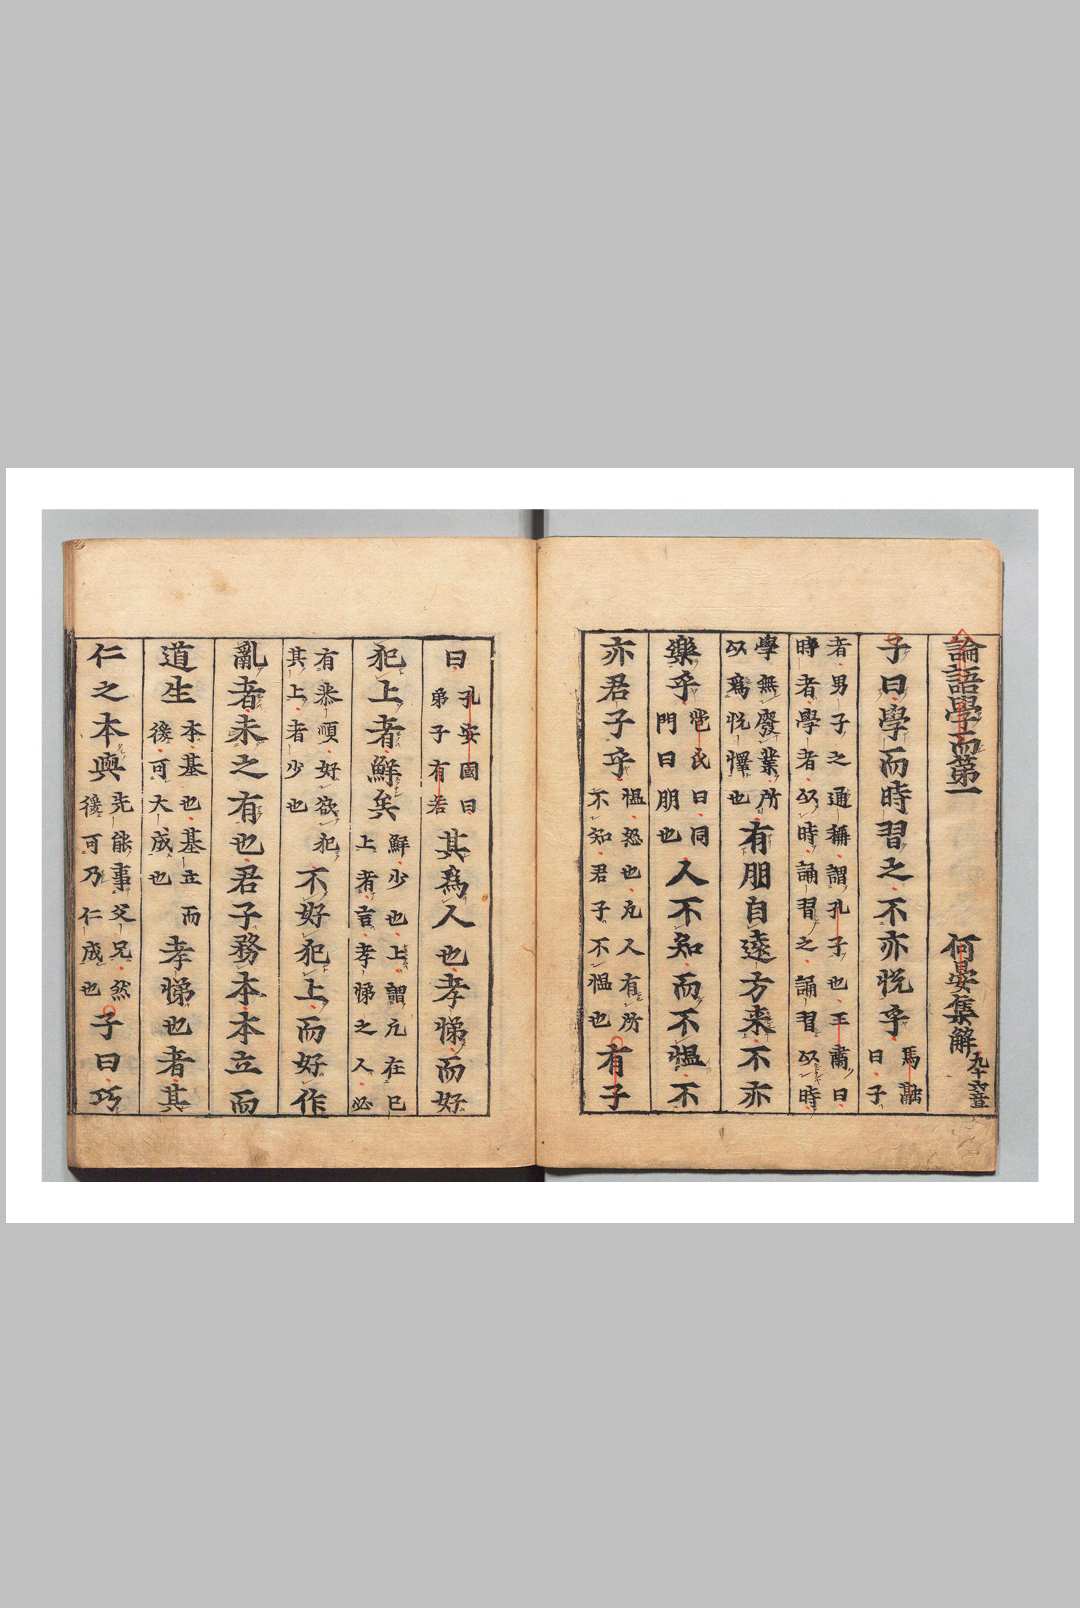 論語學而第一 何晏集解 凡十六章
子曰學而時習之不亦悦乎 馬融曰子
者男子之通稱謂孔子也王肅曰時者學者以時誦習之誦習以時
學無廢業所以爲悦懌也有朋自遠方来不亦
樂乎 苞氏曰同門曰朋也人不知而不愠不
亦君子乎 愠怒也凡人有所不知君子不愠也有子
曰 孔安國曰弟子有若其爲人也孝悌而好
犯上者鮮矣 鮮少也上謂凡在己上者言孝悌之人必
有恭順好欲犯其上者少也不好犯上而好作
亂者未之有也君子務本本立而
道生 本基也基立而後可大成也孝悌也者其
仁之本與 先能事父兄然後可乃仁成也子曰巧